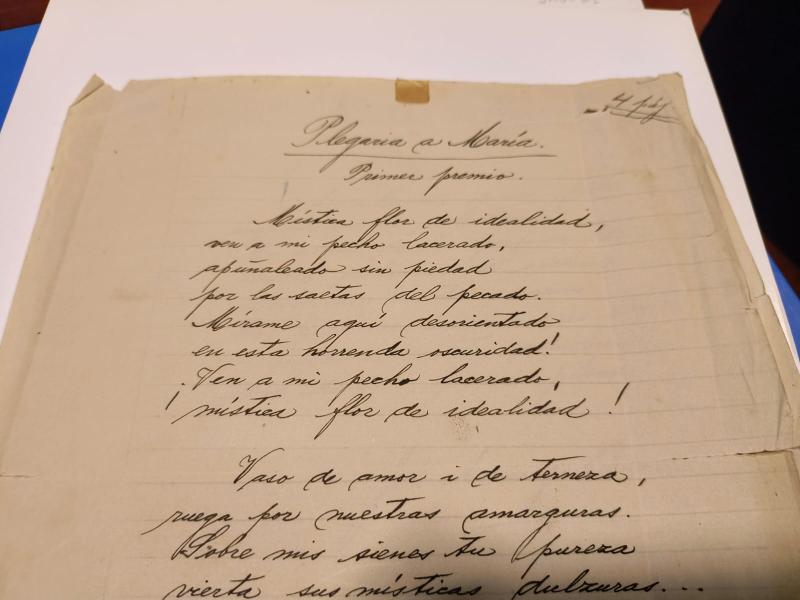 4 pág
Plegaria a María.
Primer premio.
Mística flor de idealidad,
ven a mi pecho lacerado,
apuñaleado sin piedad
por las saetas del pecado.
Mírame aquí desorientado
en esta horrenda oscuridad!
¡Ven a mi pecho lacerado,
mística flor de idealidad!
Vaso de amor i de terneza,
ruega por nuestras amarguras.
Sobre mis sienes tu pureza
vierta sus místicas dulzuras...